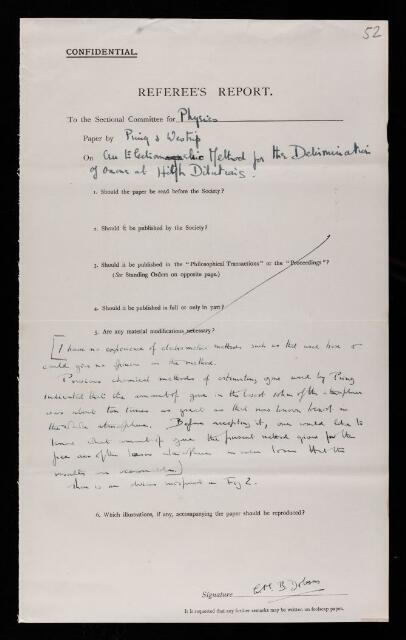 52
CONFIDENTIAL.
REFEREE'S REPORT.
To the Sectional Committee for Physics
Paper by Pring & Westrip
On An Electrometric Method for the Determination
of Ozone at High Dilutions.
1. Should the paper be read before the Society?
2. Should it be published by the Society?
3. Should it be published in the "Philosophical Transactions" or the "Proceedings"?
(See Standing Orders on opposite page.)
4. Should it be published in full or only in part?
5. Are any material modifications necessary?
[I have no experience of electrometric methods such as that used here &
could give no opinion on the method.
Previous chemical methods of estimating ozone used by Pring
indicated that the amount of ozone in the lowest of the atmosphere
was about ten times as great as that now known to exist in
the whole atmosphere. Before accepting it, one would like to
know what amount of ozone the present method gives for the
free air of the lower atmosphere in order to know that the
results are reasonable.]
There is an obvious misprint in Fig 2.
6. Which illustrations, if any, accompanying the paper should be reproduced?
Signature G.M.B. Dobson
It is requested that any further remarks may be written on foolscap paper.